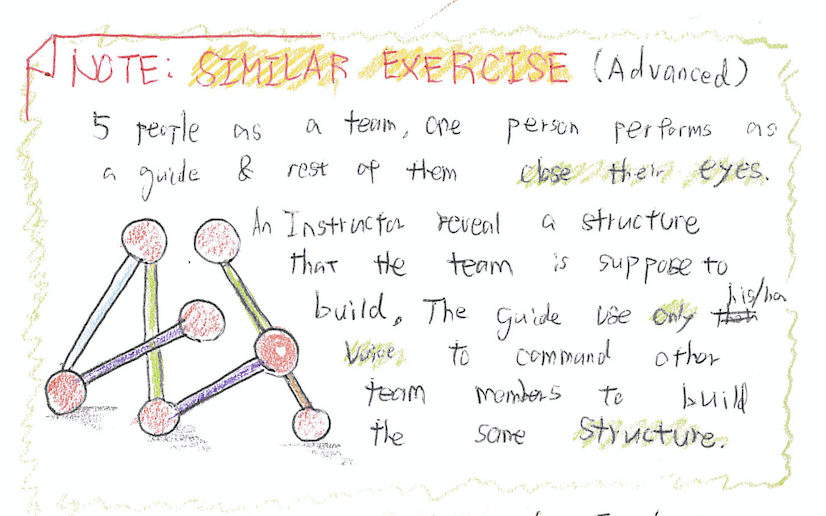 NOTE: SIMILAR EXERCISE (Advanced)
5 people as a team, one person performs as
a guide & rest of them close their eyes.
An Instructor reveal a structure
that the team is suppose to
build. The guide use only his/her
voice to command other
team members to build
the same structure.